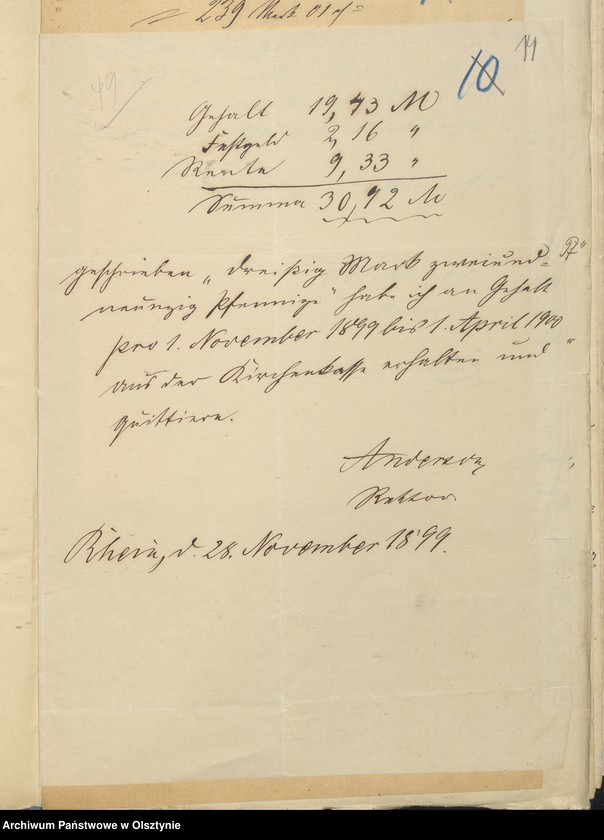 239 Mark 01 ₰
49
10
14
Gehalt 19,43 M
Festgeld 2,16 "
Rente 9,33 "
Summa 30,92 M
geschrieben „dreißig Mark zweiund-
neunzig Pfennige" habe ich an Gehalt
pro 1. November 1899 bis 1. April 1900
aus der Kirchenkasse erhalten und
quittiere.
Anderson
Rektor
Rhein, d. 28. November 1899.
Archiwum Państwowe w Olsztynie